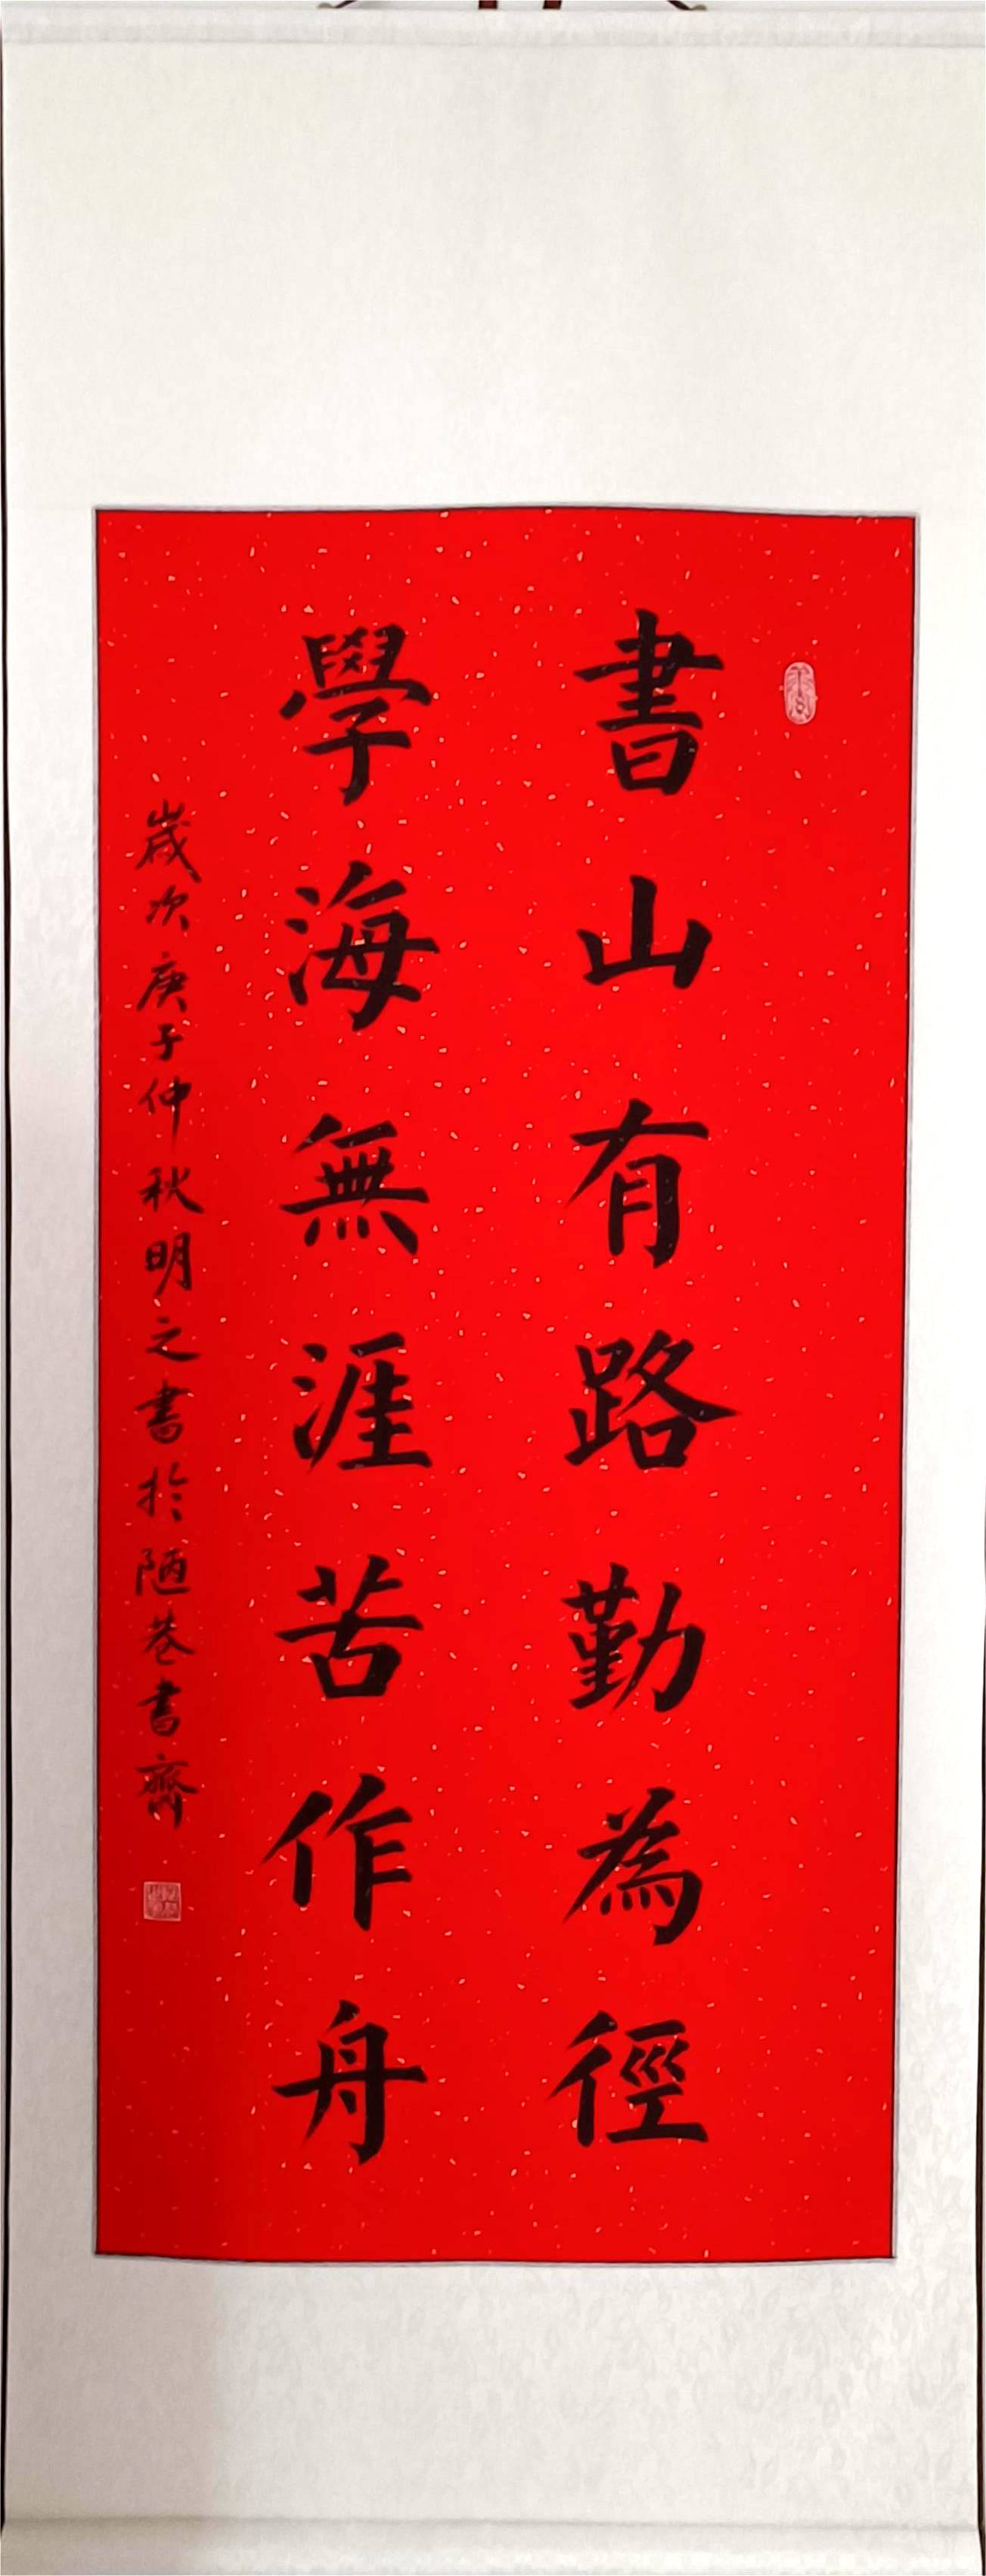 書山有路勤為徑
學海無涯苦作舟
歲次庚子仲秋明之書於陋巷書齊